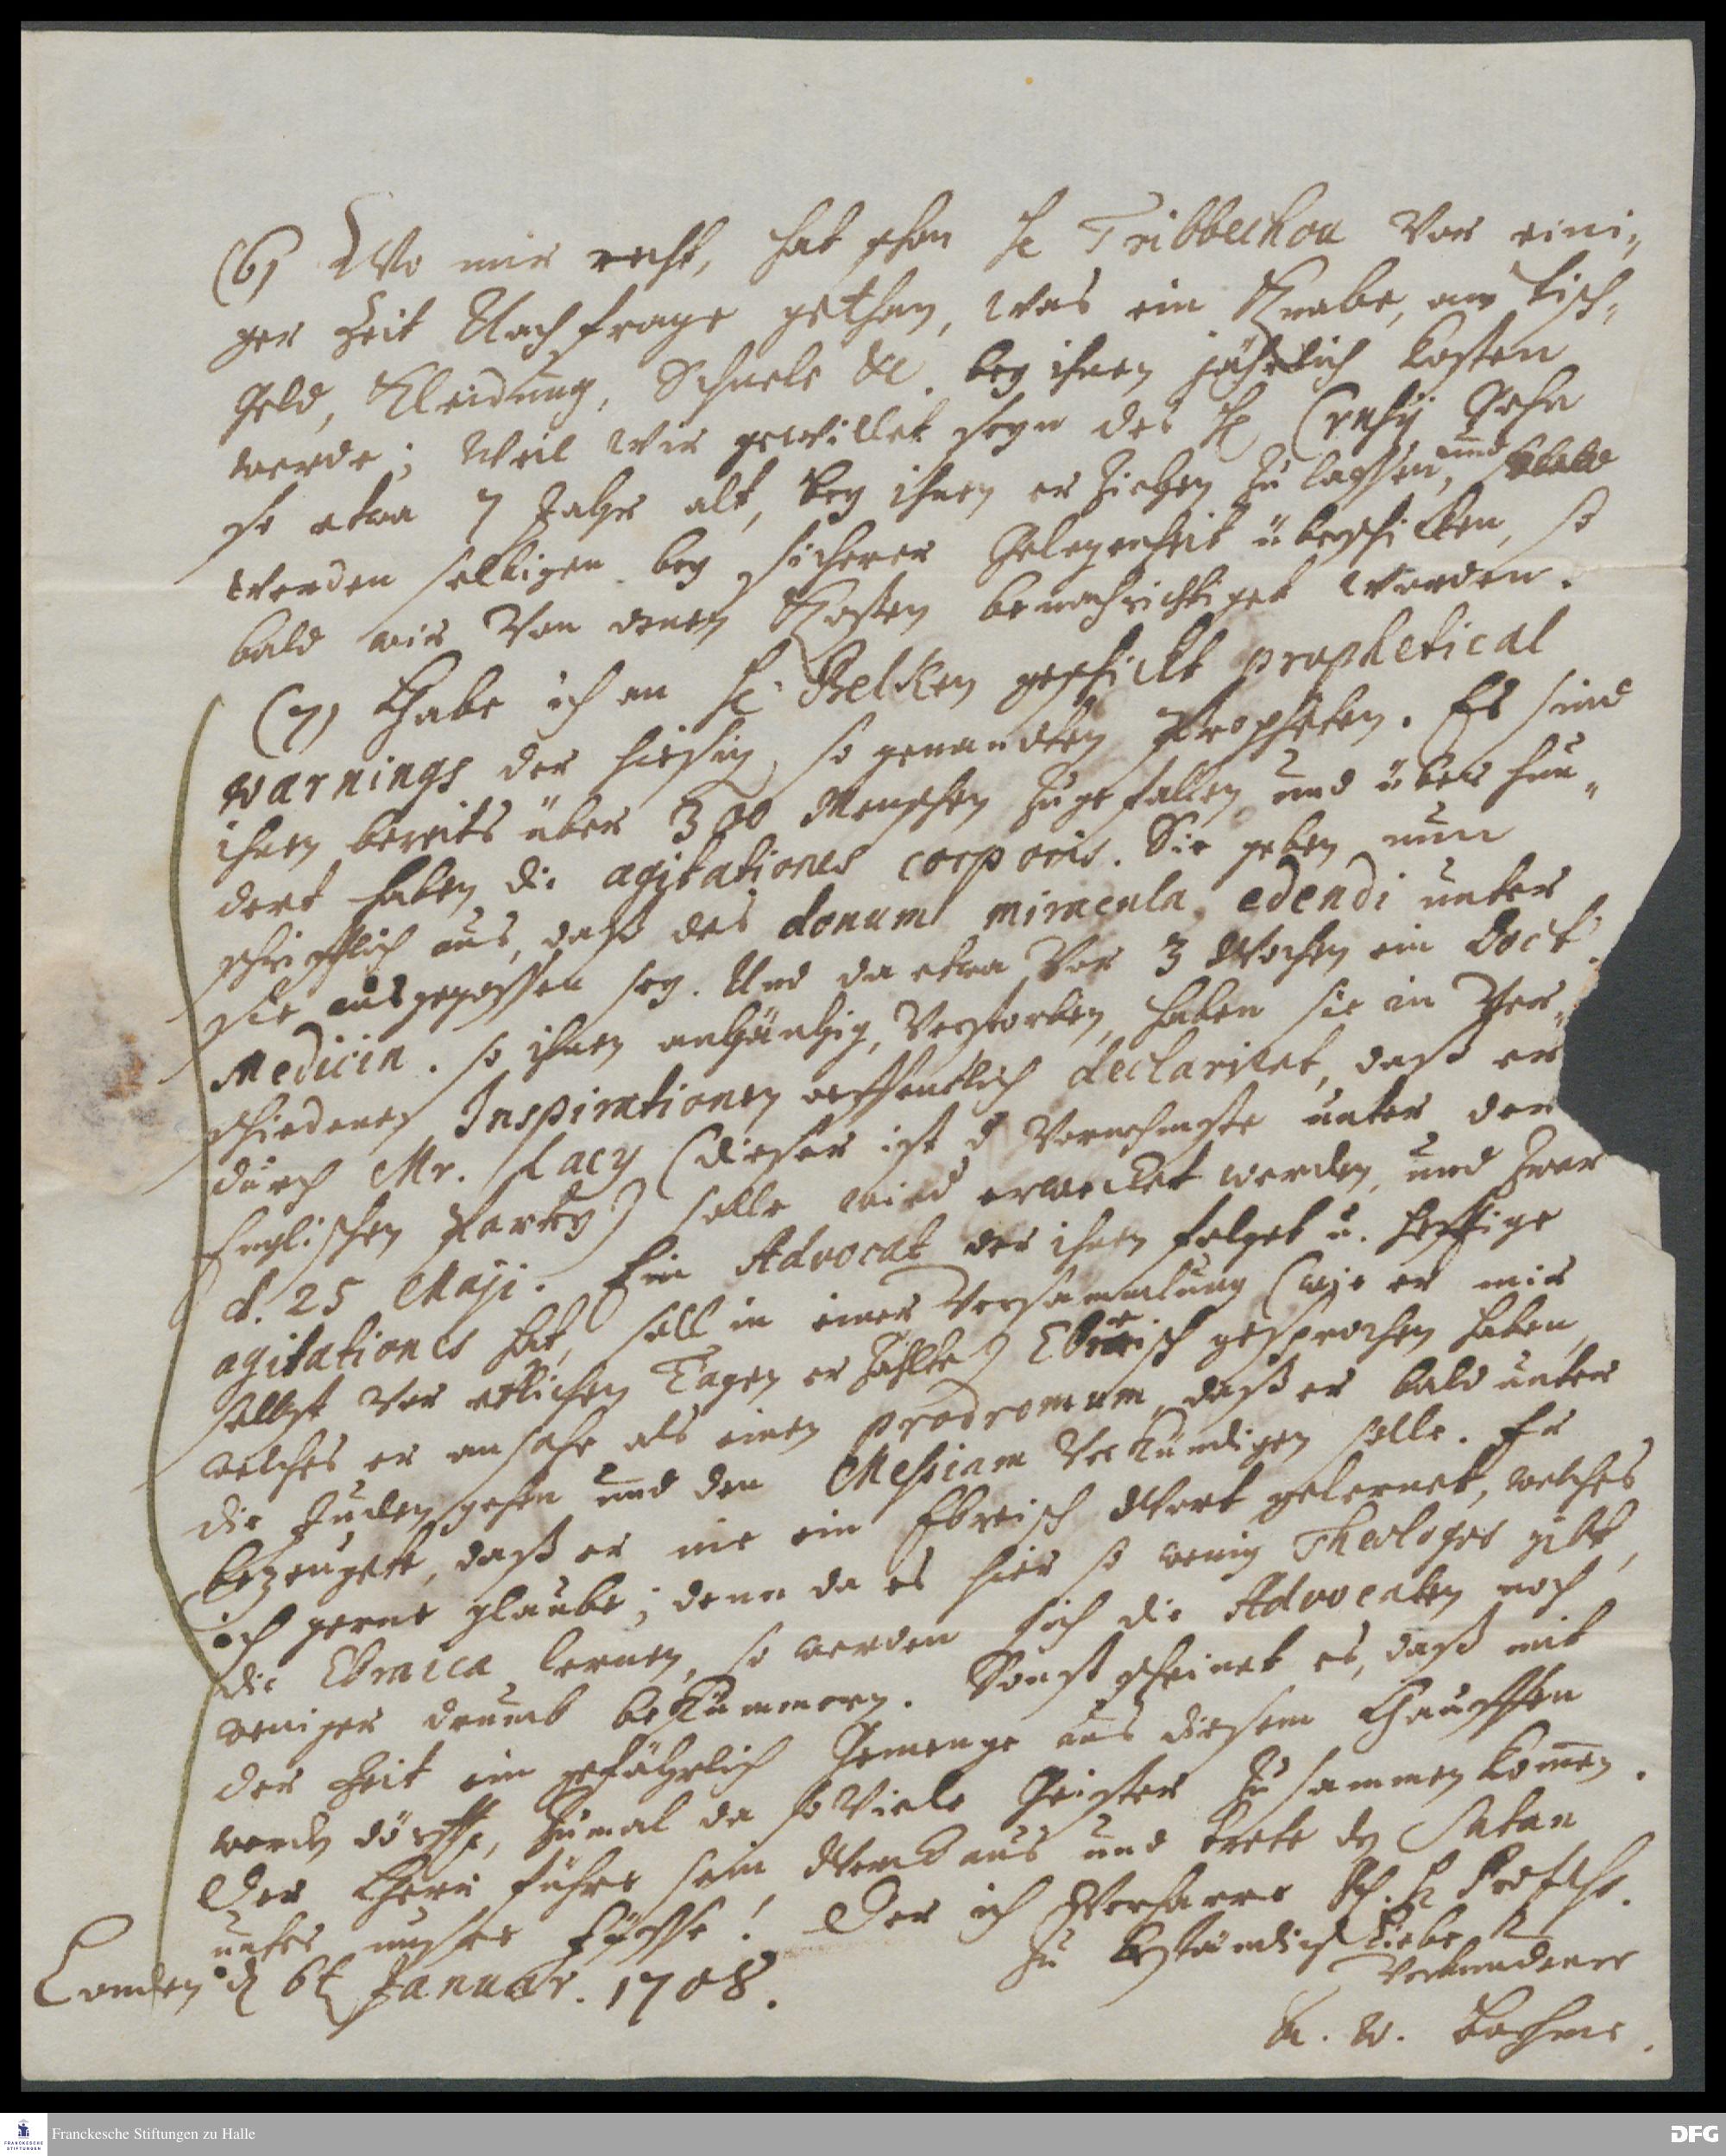 (6) Wo mir recht, hat schon H. Tribbechou vor eini-
ger Zeit Nachfrage gethan, was ein Knabe, an Tisch-
Geld, Kleidung, Schuele &c. bey ihnen jährlich kosten
werde; Weil wir gewillet seyn des H. Sohn
so etwa 7 Jahr alt, bey ihnen erziehen zu lassen, und
werden selbigen bey sicherer Gelegenheit überschicken, so
bald wir von denen Kosten benachrichtiget worden.
(7) Habe ich an H. Belken geschickt prophetical
warnings der hiesig so genandten Propheten. Es sind
ihnen bereits über 300 Menschen zugefallen und über hun-
dert haben die agitationes corporis. Sie geben nun
schrifftlich aus, daß das donum miracula edendi unter
sie ausgegossen sey. Und da etwa vor 3 Wochen ein Doct.
Medicin. so ihnen anhängig, verstorben, haben sie in Ver-
schiedenen Inspirationen oeffentlich declariret, daß er
durch Mr. Lacy (dieser ist d Vornehmste unter der
Englischen Party) solle wied erwecket werden, und zwar
d. 25 Maji. Ein Advocat der ihnen folget u. hefftige
agitationes hat, soll in einer Versammlung (wie er mir
selbst vor etlichen Tagen erzählte) Ebreisch gesprochen haben,
welches er ansahe als einen prodromum, daß er bald unter
die Juden gehen und den Messiam verkündigen solle. Er
bezeugete, daß er nie ein Ebreisch Wort gelernet, welches
ich gerne glaube; denn da es hier so wenig Theologos gibt,
die Ebraica lernen, so werden sich die Advocaten noch
weniger drumb bekümmern. Sonst scheinet es, daß mit
der Zeit ein gefährlich Gemenge aus diesem Hauffen
werden dörffte, zumal da so viele Geister zusammen kom̄en.
Der Herr führe sein Werck aus und trete den Satan
unter unsere Füsse! Der ich verharre H. Profess.
zu beständiger Liebe
Verbundener
Londen d 6t Januar. 1708.
A. W. Boehme.
Franckesche Stiftungen zu Halle
FRANCKESCHE STIFTUNGEN
DFG